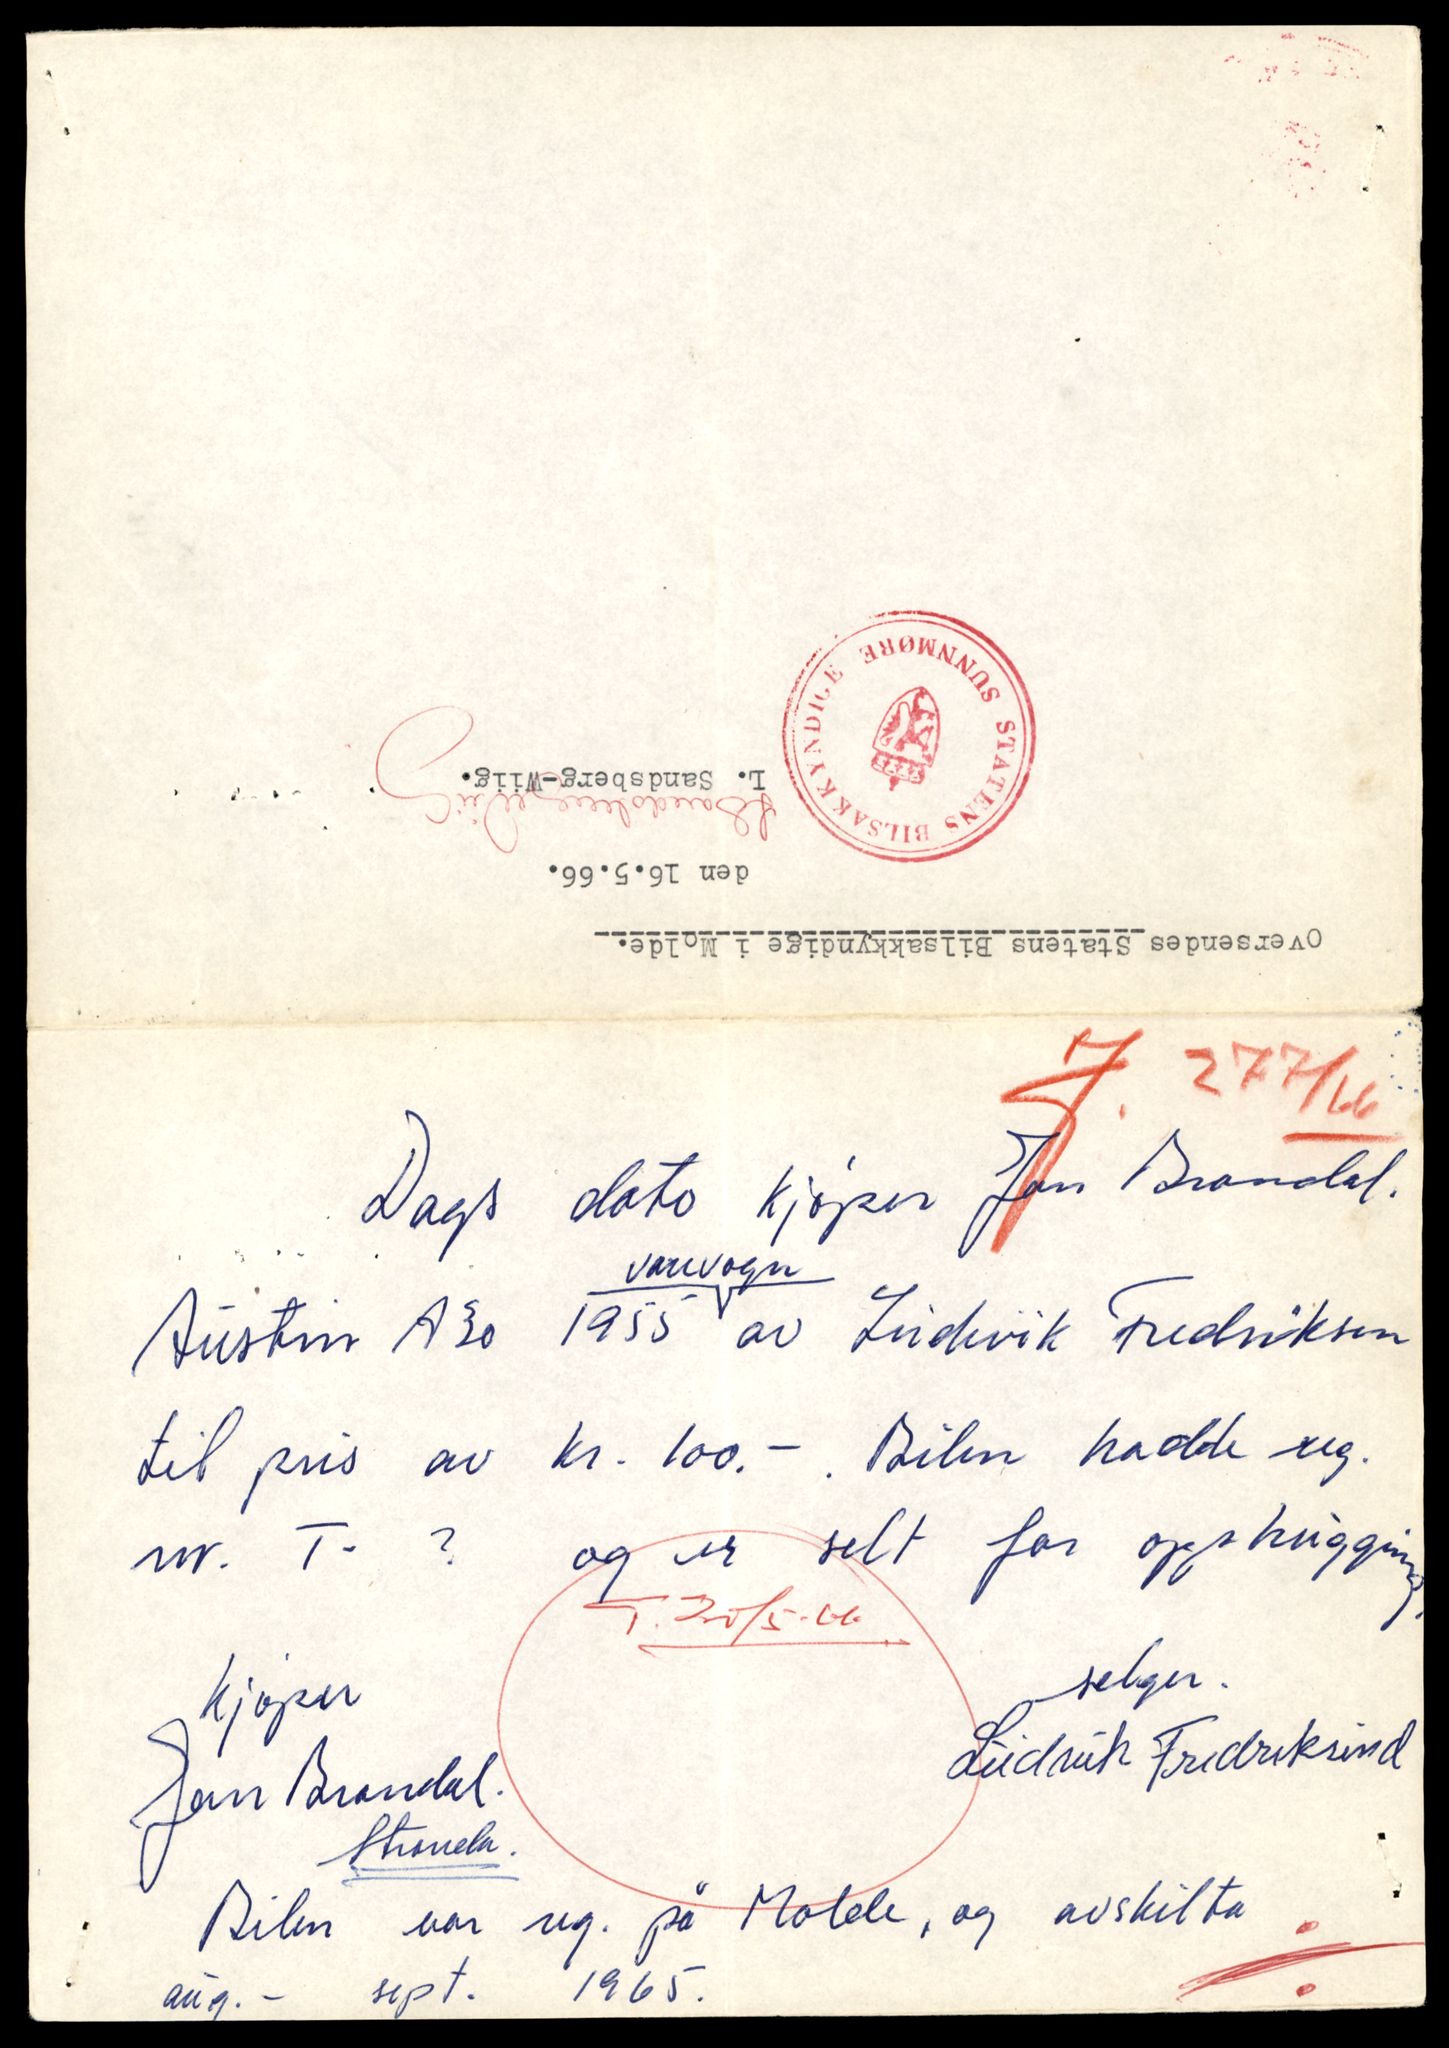 Oversendes Statens Bilsakkyndige i Molde.
den 16.5.66.
L. Sandsberg-Wiig.
STATENS BILSAKKYNDIGE SUNNMØRE
J. 277/66
Dags dato kjøper Jan Brandal.
varevogn
Austin A30 1955 av Ludvik Fredriksen
til pris av kr. 100.-. Bilen hadde reg.
nr. T- ? og er selt for opphugging.
T. 20/5-66
kjøper
selger.
Jan Brandal.
Ludvik Fredriksen
Stranda.
Bilen var reg. på Molde, og avskilta
aug.- sept. 1965.